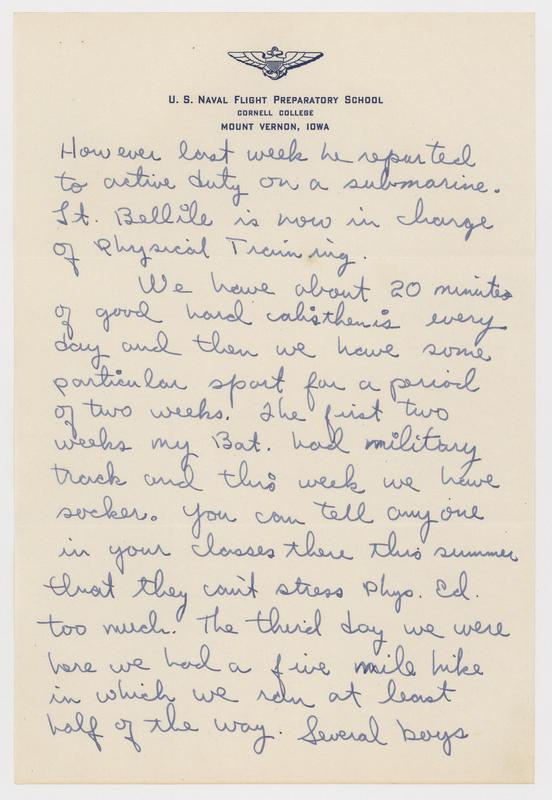 U. S. NAVAL FLIGHT PREPARATORY SCHOOL
CORNELL COLLEGE
MOUNT VERNON, IOWA
However last week he reported
to active duty on a submarine.
Lt. Bellile is now in charge
of Physical Training.
We have about 20 minutes
of good hard calisthenis every
day and then we have some
particular sport for a period
of two weeks. The first two
weeks my Bat. had military
track and this week we have
socker. You can tell anyone
in your classes there this summer
that they can't stress Phys. Ed.
too much. The third day we were
here we had a five mile hike
in which we ran at least
half of the way. Several boys